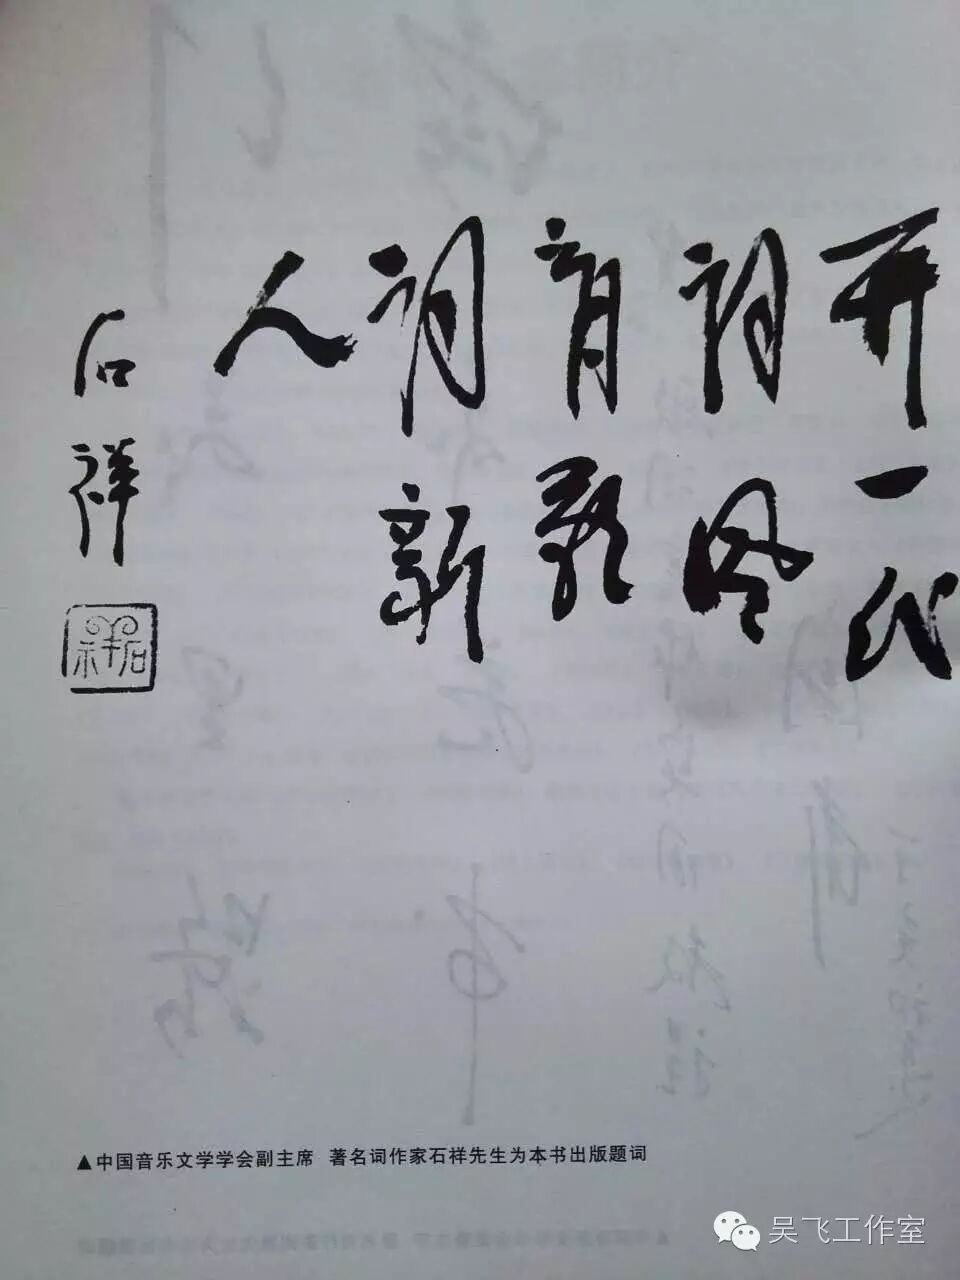 开一代
词风
育歌
词新
人
石祥
石祥
▲中国音乐文学学会副主席 著名词作家石祥先生为本书出版题词
吴飞工作室